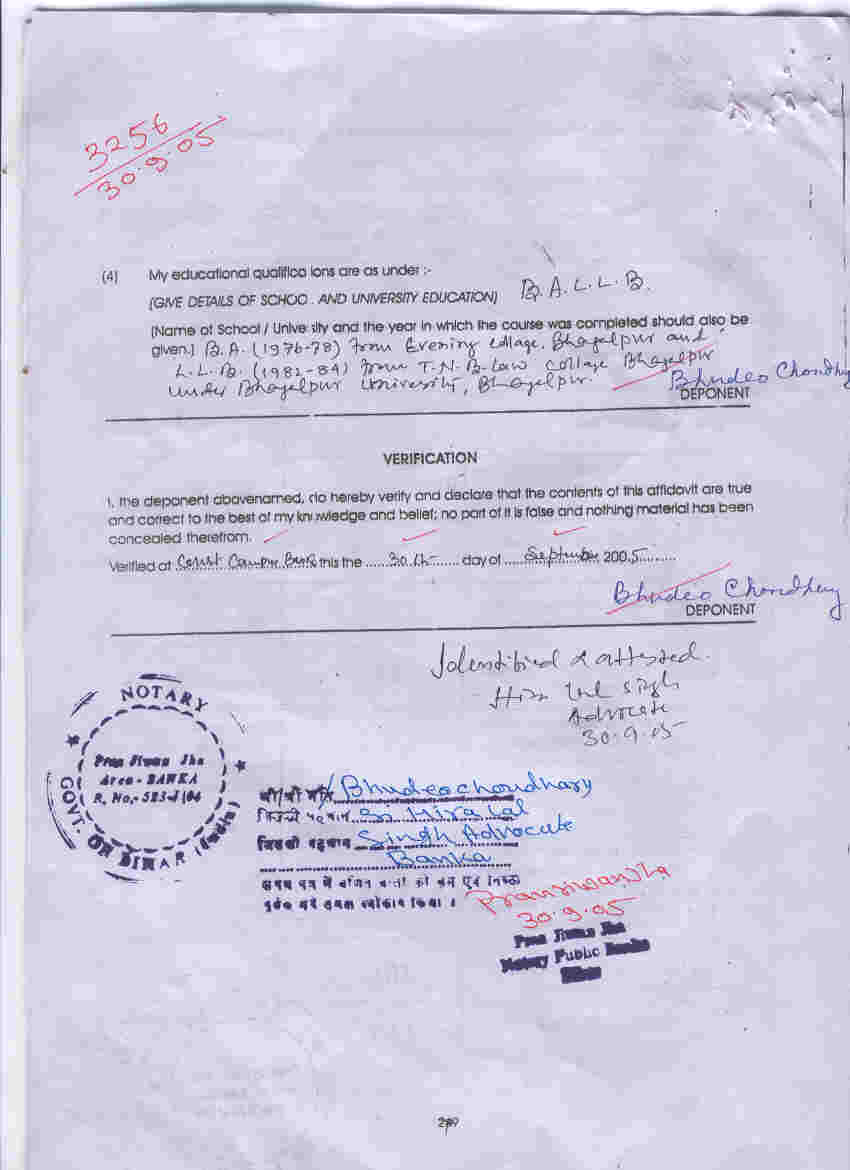 3256
30.9.05
(4) My educational qualifica ions are as under :-
[GIVE DETAILS OF SCHOO . AND UNIVERSITY EDUCATION] B.A.L.L.B.
[Name of School / Unive sity and the year in which the course was completed should also be
given.] B.A. (1976-78) from Evening collage, Bhagalpur and
L.L.B. (1982-84) from T.N.B. Law collage Bhagalpur
under Bhagelpur University, Bhagelpur.
Bhudeo Choudhary
DEPONENT
VERIFICATION
I, the deponent abovenamed, do hereby verify and declare that the contents of this affidavit are true
and correct to the best of my knowledge and belief; no part of it is false and nothing material has been
concealed therefrom.
Verified at Court Campus Banka this the 30 th day of September 2005
Bhudeo Choudhary
DEPONENT
Identified & attested.
Hira Lal Singh
Advocate
30.9.05
NOTARY
Pran Jiwan Jha
Area - BANKA
R. No.- 583-J/04
GOVT. OF BIHAR (India)
Bhudeo choudhary
Hira Lal
जिसकी पहचान Singh Advocate
Banka
शपथ पत्र में वर्णित
पूर्वक मेरे समक्ष स्वीकार किया ।
Pranjiwan Jha
30.9.05
Pran Jiwan Jha
Notary Public Banka